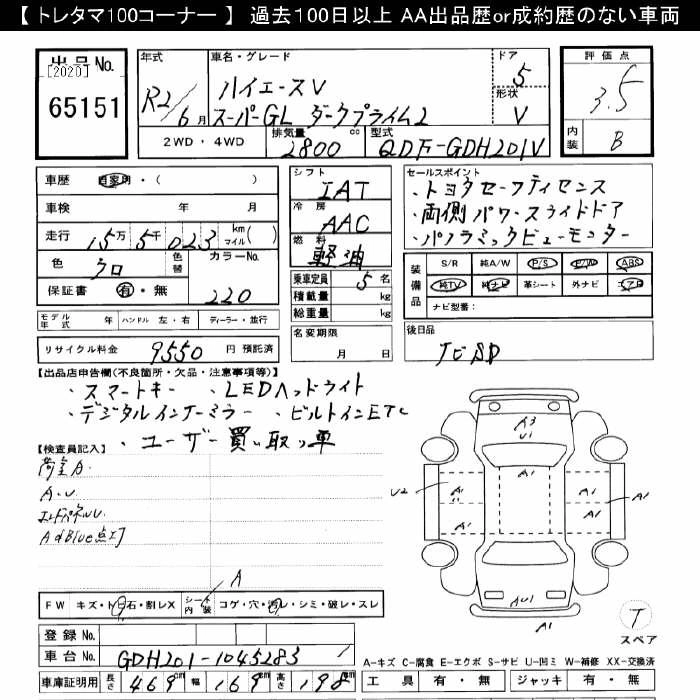 【 トレタマ100コーナー 】 過去100日以上 AA出品歴or成約歴のない車両
出品No.
[2020]
65151
年式
R2/6月
車名・グレード
ハイエースV
スーパーGL ダークプライム2
ドア
5
形状
V
評価点
3.5
内装
B
2WD・4WD
排気量
2800
cc
型式
QDF-GDH201V
車歴
自家用・( )
車検 年 月
走行 15万 5千 023 km マイル( )
色
クロ
色替
カラーNo.
220
保証書 有・無
シフト
IAT
冷房
AAC
燃料
軽油
乗車定員 5 名
積載量 kg
総重量 kg
セールスポイント
・トヨタセーフティセンス
・両側パワースライドドア
・パノラミックビューモニター
装備品
S/R 純A/W P/S P/W ABS
純TV 純ナビ 革シート 外ナビ エアB
ナビ型番:
モデル年式 年 ハンドル 左・右 ディーラー・並行
リサイクル料金 9550 円 預託済
名変期限
月 日
後日品
ナビSD
【出品店申告欄(不良箇所・欠品・注意事項等)】
・スマートキー ・LEDヘッドライト
・デジタルインナーミラー ・ビルトインETC
・ユーザー買い取り車
【検査員記入】
荷室A.
A.U
エンドパネルU.
AdBlue点灯
A
A3
U1
A1
U2
A1
A1
A1
A1
A1
AU1
A1
FW キズ・ト石・割レX
シート内装 コゲ・穴・汚レ・シミ・破レ・スレ
登録No.
車台No.
GDH201-1045283
1
車庫証明用 長さ 469cm 幅 169cm 高さ 198cm
T
スペア
A-キズ C-腐食 E-エクボ S-サビ U-凹ミ W-補修 XX-交換済
工具 有・無 ジャッキ 有・無